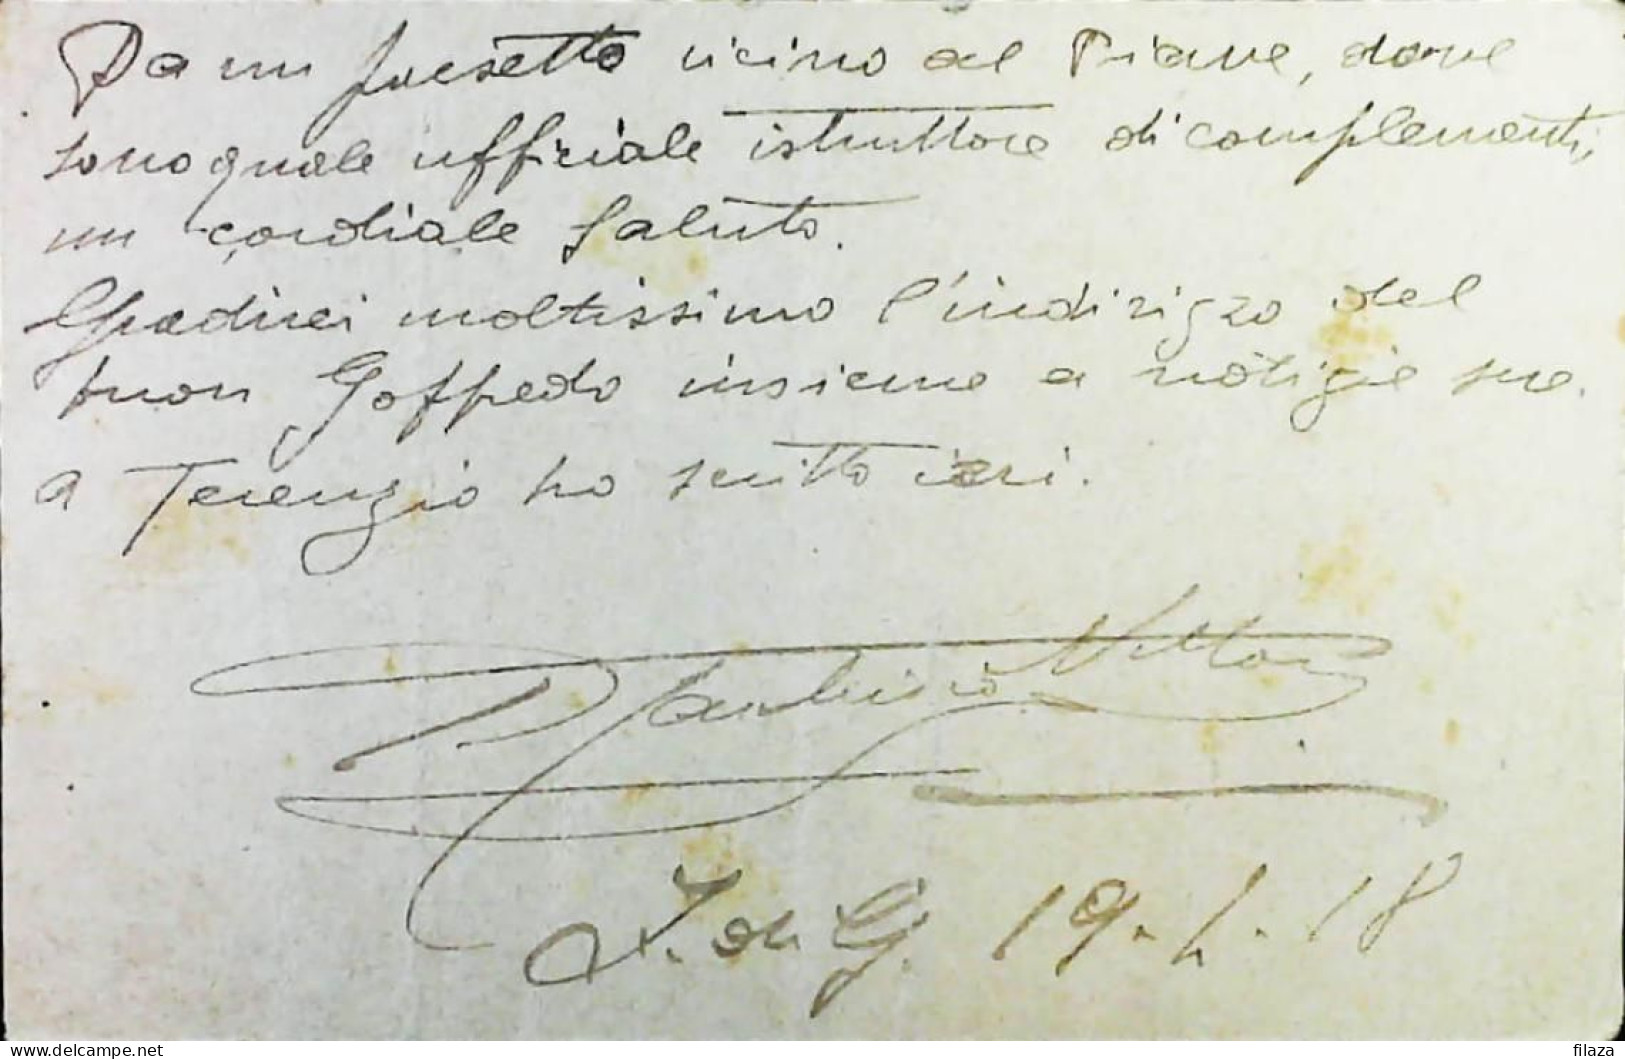 Da un paesetto vicino al Piave, dove
sono quale ufficiale istruttore di complementi,
un cordiale saluto.
Gradirei moltissimo l'indirizzo del
buon Goffredo insieme a notizie sue.
A Terenzio ho scritto ieri.
Vittorio
Z. di G. 19-1-18
delcampe.net
filaza